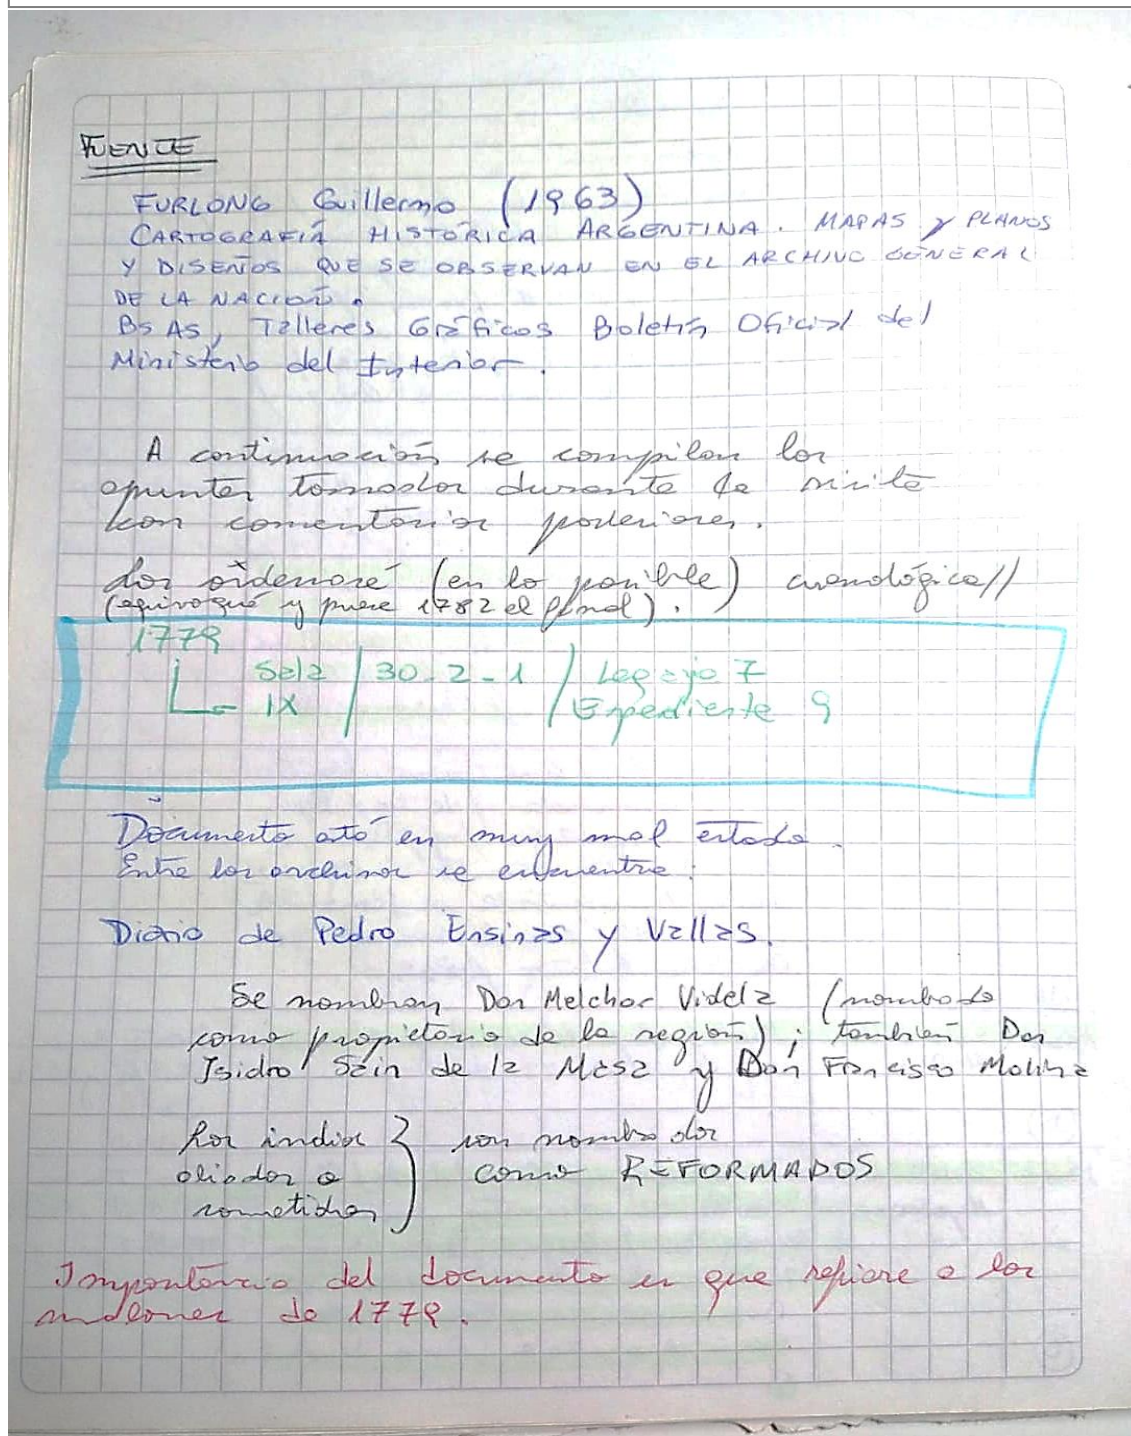 FUENTE
FURLONG Guillermo (1963)
CARTOGRAFÍA HISTÓRICA ARGENTINA. MAPAS y PLANOS
Y DISEÑOS QUE SE OBSERVAN EN EL ARCHIVO GENERAL
DE LA NACIÓN.
Bs As, Talleres Gráficos Boletín Oficial del
Ministerio del Interior.
A continuación se compilan los
apuntes tomados durante la visita
con comentarios posteriores.
Los ordenaré (en lo posible) cronológica//
(equivoqué y puse 1782 al final).
1779
Sala / 30-2-1 / Legajo 7
IX / Expediente 9
Documento está en muy mal estado.
Entre los archivos se encuentra:
Diario de Pedro Ensinas y Vallas.
Se nombran Don Melchor Videla (nombrado
como propietario de la región); también Don
Isidro Sain de la Mesa y Don Francisco Molina
Los indios } son nombrados
aliados o } como REFORMADOS
sometidos }
Importancia del documento es que refiere a los
malones de 1779.